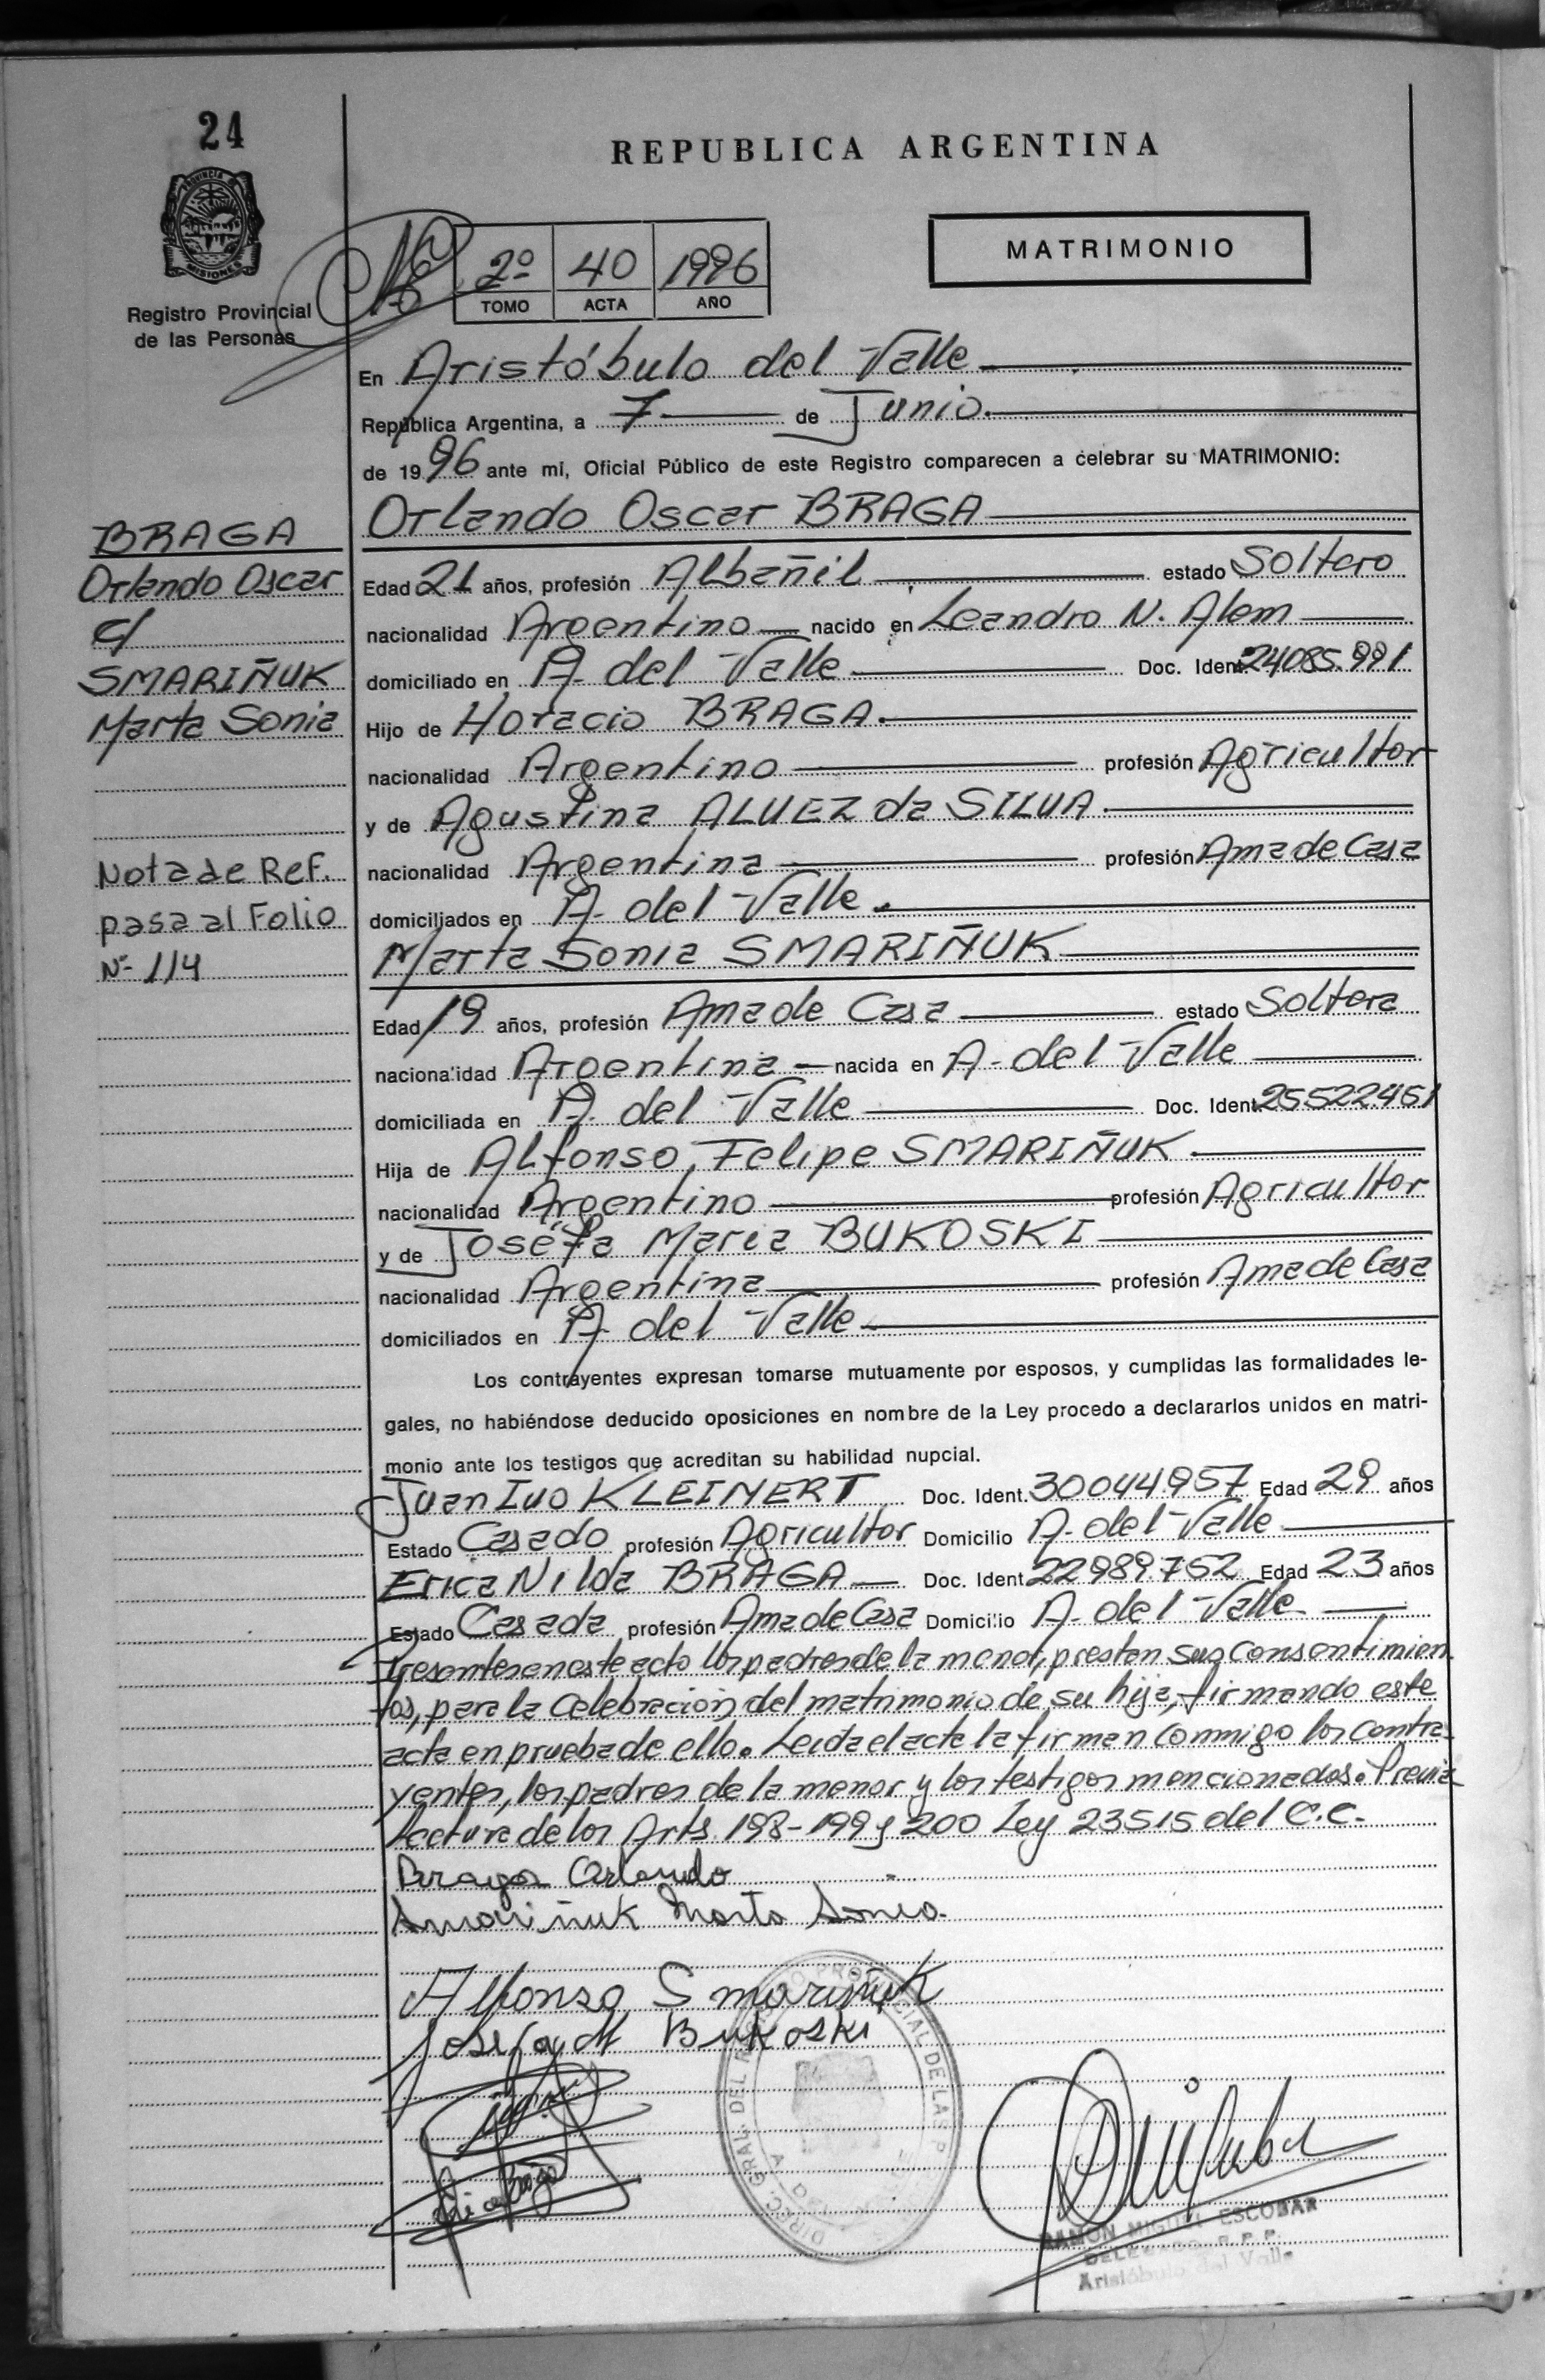 24
REPUBLICA ARGENTINA
PROVINCIA DE
MISIONES
Registro Provincial
de las Personas
2º 40 1996
TOMO ACTA AÑO
MATRIMONIO
En Aristóbulo del Valle
República Argentina, a 7 de Junio
de 1996 ante mi, Oficial Público de este Registro comparecen a celebrar su MATRIMONIO:
BRAGA
Orlando Oscar
c/
SMARIÑUK
Marta Sonia
Nota de Ref.
pasa al Folio
Nº 114
Orlando Oscar BRAGA
Edad 21 años, profesión Albañil estado Soltero
nacionalidad Argentino nacido en Leandro N. Alem
domiciliado en A. del Valle Doc. Ident. 24085.991
Hijo de Horacio BRAGA
nacionalidad Argentino profesión Agricultor
y de Agustina ALVEZ da SILVA
nacionalidad Argentina profesión Ama de Casa
domiciliados en A. del Valle
Marta Sonia SMARIÑUK
Edad 19 años, profesión Ama de Casa estado Soltera
nacionalidad Argentina nacida en A. del Valle
domiciliada en A. del Valle Doc. Ident. 25522451
Hija de Alfonso Felipe SMARIÑUK
nacionalidad Argentino profesión Agricultor
y de Josefa Maria BUKOSKI
nacionalidad Argentina profesión Ama de Casa
domiciliados en A. del Valle
Los contrayentes expresan tomarse mutuamente por esposos, y cumplidas las formalidades le-
gales, no habiéndose deducido oposiciones en nombre de la Ley procedo a declararlos unidos en matri-
monio ante los testigos que acreditan su habilidad nupcial.
Juan Ivo KLEINERT Doc. Ident. 30044957 Edad 29 años
Estado Casado profesión Agricultor Domicilio A. del Valle
Erica Nilda BRAGA Doc. Ident. 22989.752 Edad 23 años
Estado Casada profesión Ama de Casa Domicilio A. del Valle
Presentes en este acto los padres de la menor, prestan sus consentimien
tos, para la celebración del matrimonio de su hija, firmando este
acta en prueba de ello. Leida el acta la firman conmigo los contra-
yentes, los padres de la menor y los testigos mencionados. Previa
Lectura de los Arts. 198-199 y 200 Ley 23515 del C.C.
Braga Orlando
Smariñuk Marta Sonia
Alfonso Smariñuk
Josefa M Bukoski
DIREC. GRAL. DEL REGISTRO PROVINCIAL DE LAS P
RAMON MIGUEL ESCOBAR
DELEGADO R.P.P.
Aristóbulo del Valle